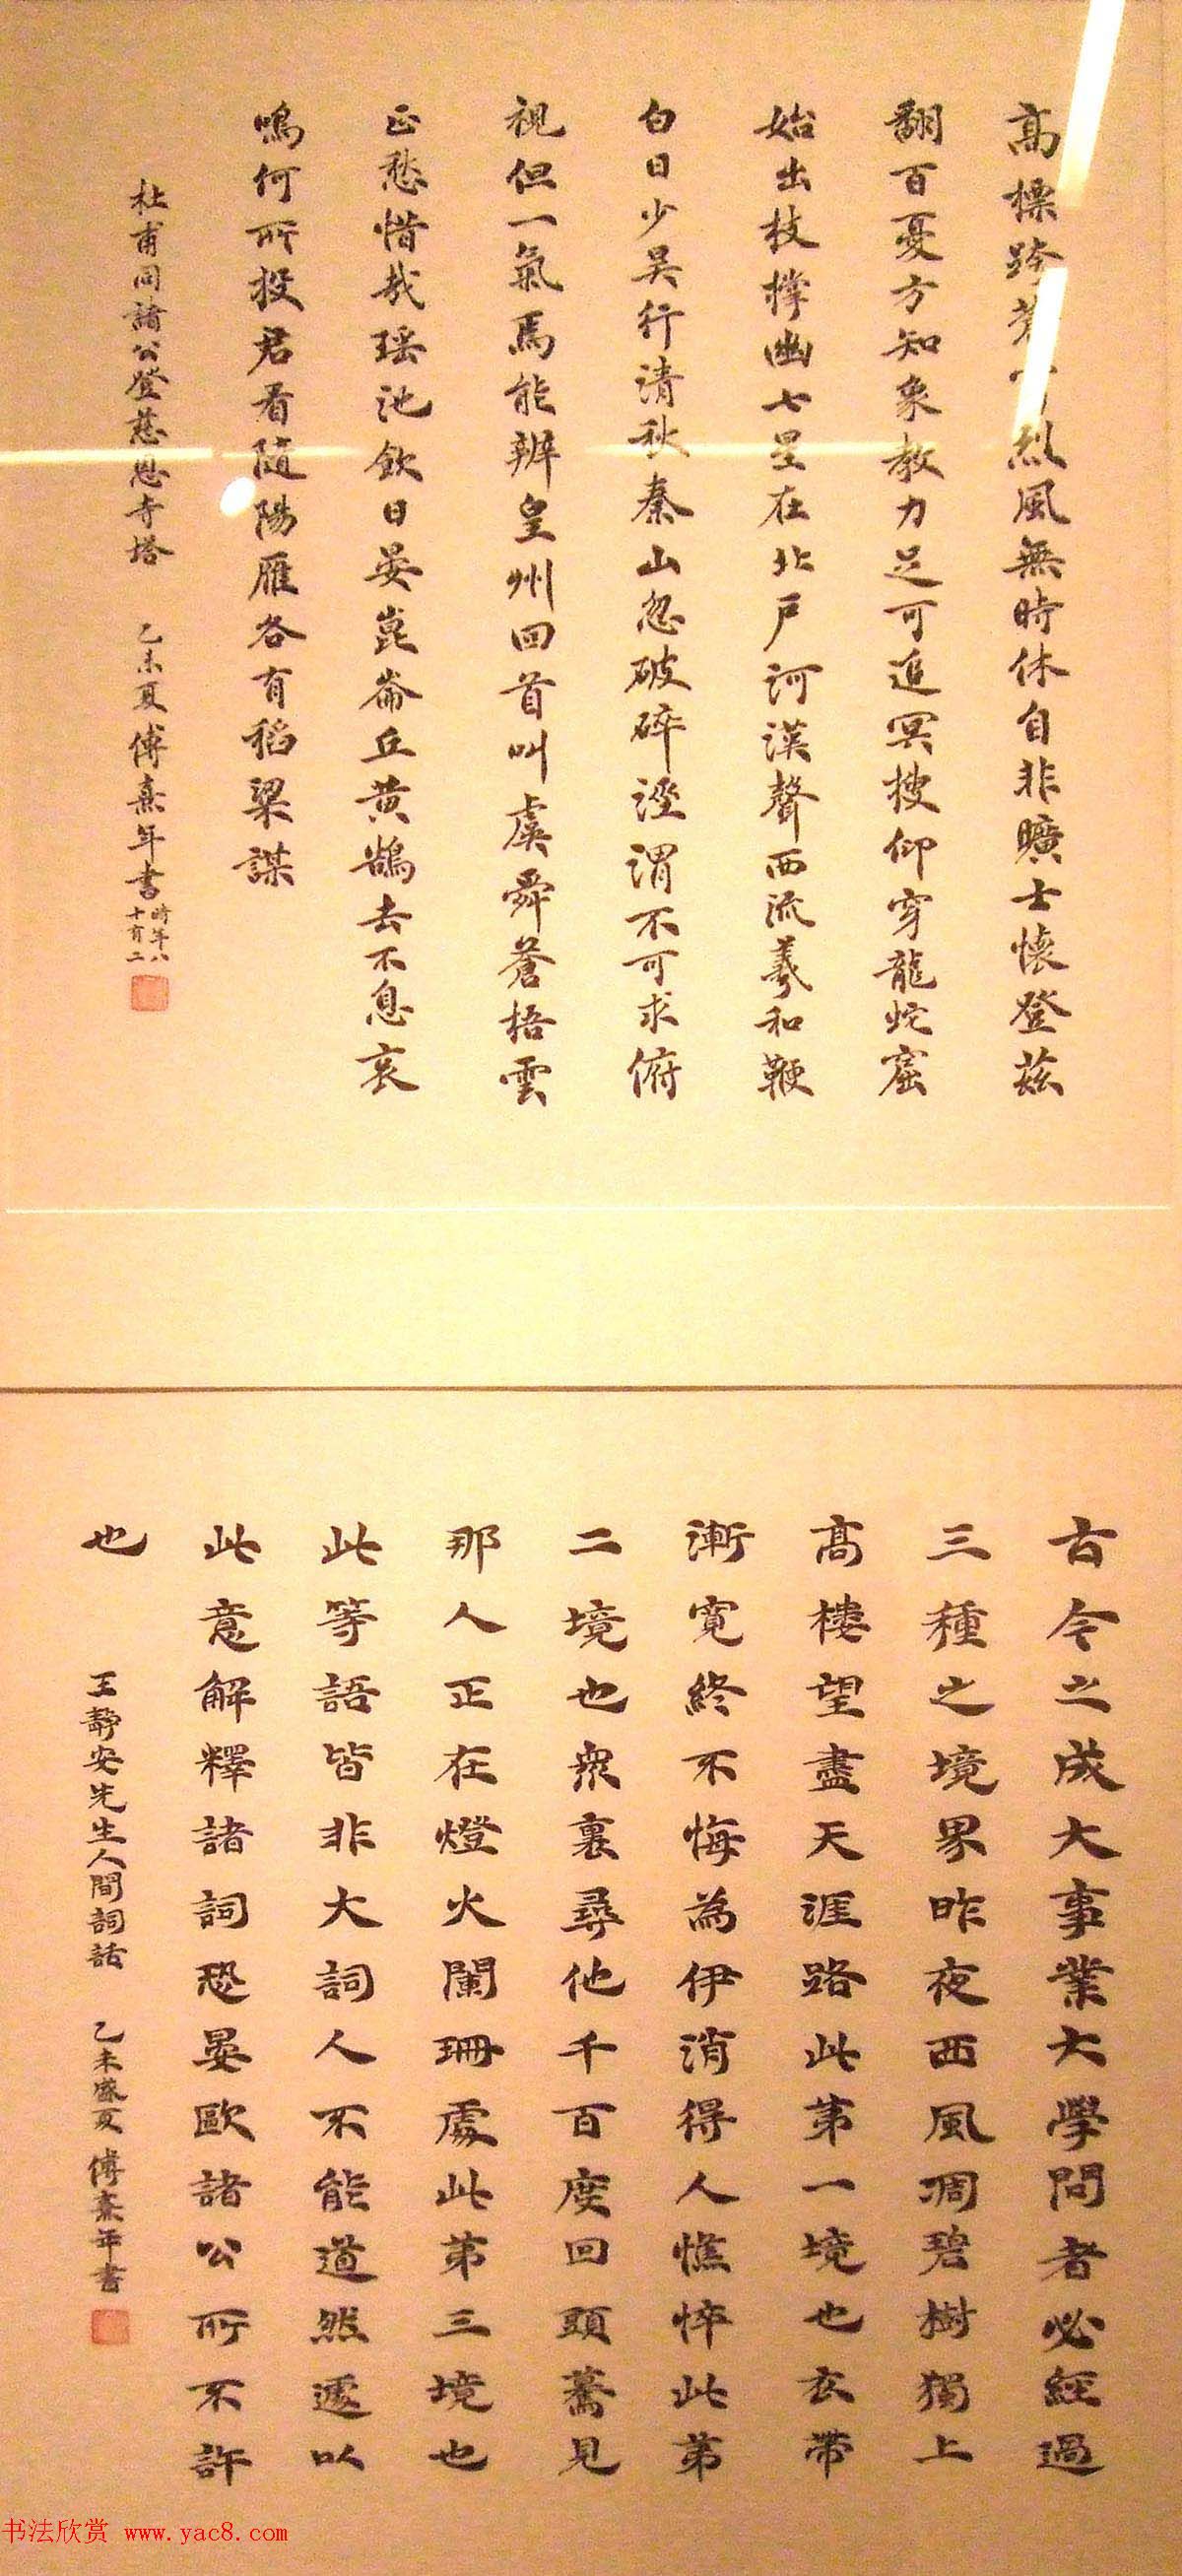 高標跨蒼穹烈風無時休自非曠士懷登茲
翻百憂方知象教力足可追冥搜仰穿龍蛇窟
始出枝撐幽七星在北戶河漢聲西流羲和鞭
白日少昊行清秋秦山忽破碎涇渭不可求俯
視但一氣焉能辨皇州回首叫虞舜蒼梧雲
正愁惜哉瑤池飲日晏崑崙丘黃鵠去不息哀
鳴何所投君看隨陽雁各有稻粱謀
杜甫同諸公登慈恩寺塔 乙未夏傅熹年書 時年八十有二
古今之成大事業大學問者必經過
三種之境界昨夜西風凋碧樹獨上
高樓望盡天涯路此第一境也衣帶
漸寬終不悔為伊消得人憔悴此第
二境也眾裏尋他千百度回頭驀見
那人正在燈火闌珊處此第三境也
此等語皆非大詞人不能道然遽以
此意解釋諸詞恐晏歐諸公所不許
也
王靜安先生人間詞話 乙未盛夏 傅熹年書
书法欣赏 www.yac8.com